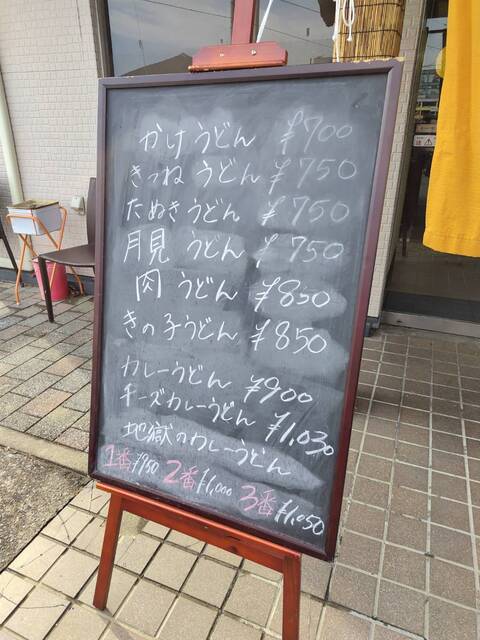 かけうどん ¥700
きつねうどん ¥750
たぬきうどん ¥750
月見うどん ¥750
肉うどん ¥850
きの子うどん ¥850
カレーうどん ¥900
チーズカレーうどん ¥1,030
地獄のカレーうどん
1番 ¥950 2番 ¥1,000 3番 ¥1,050